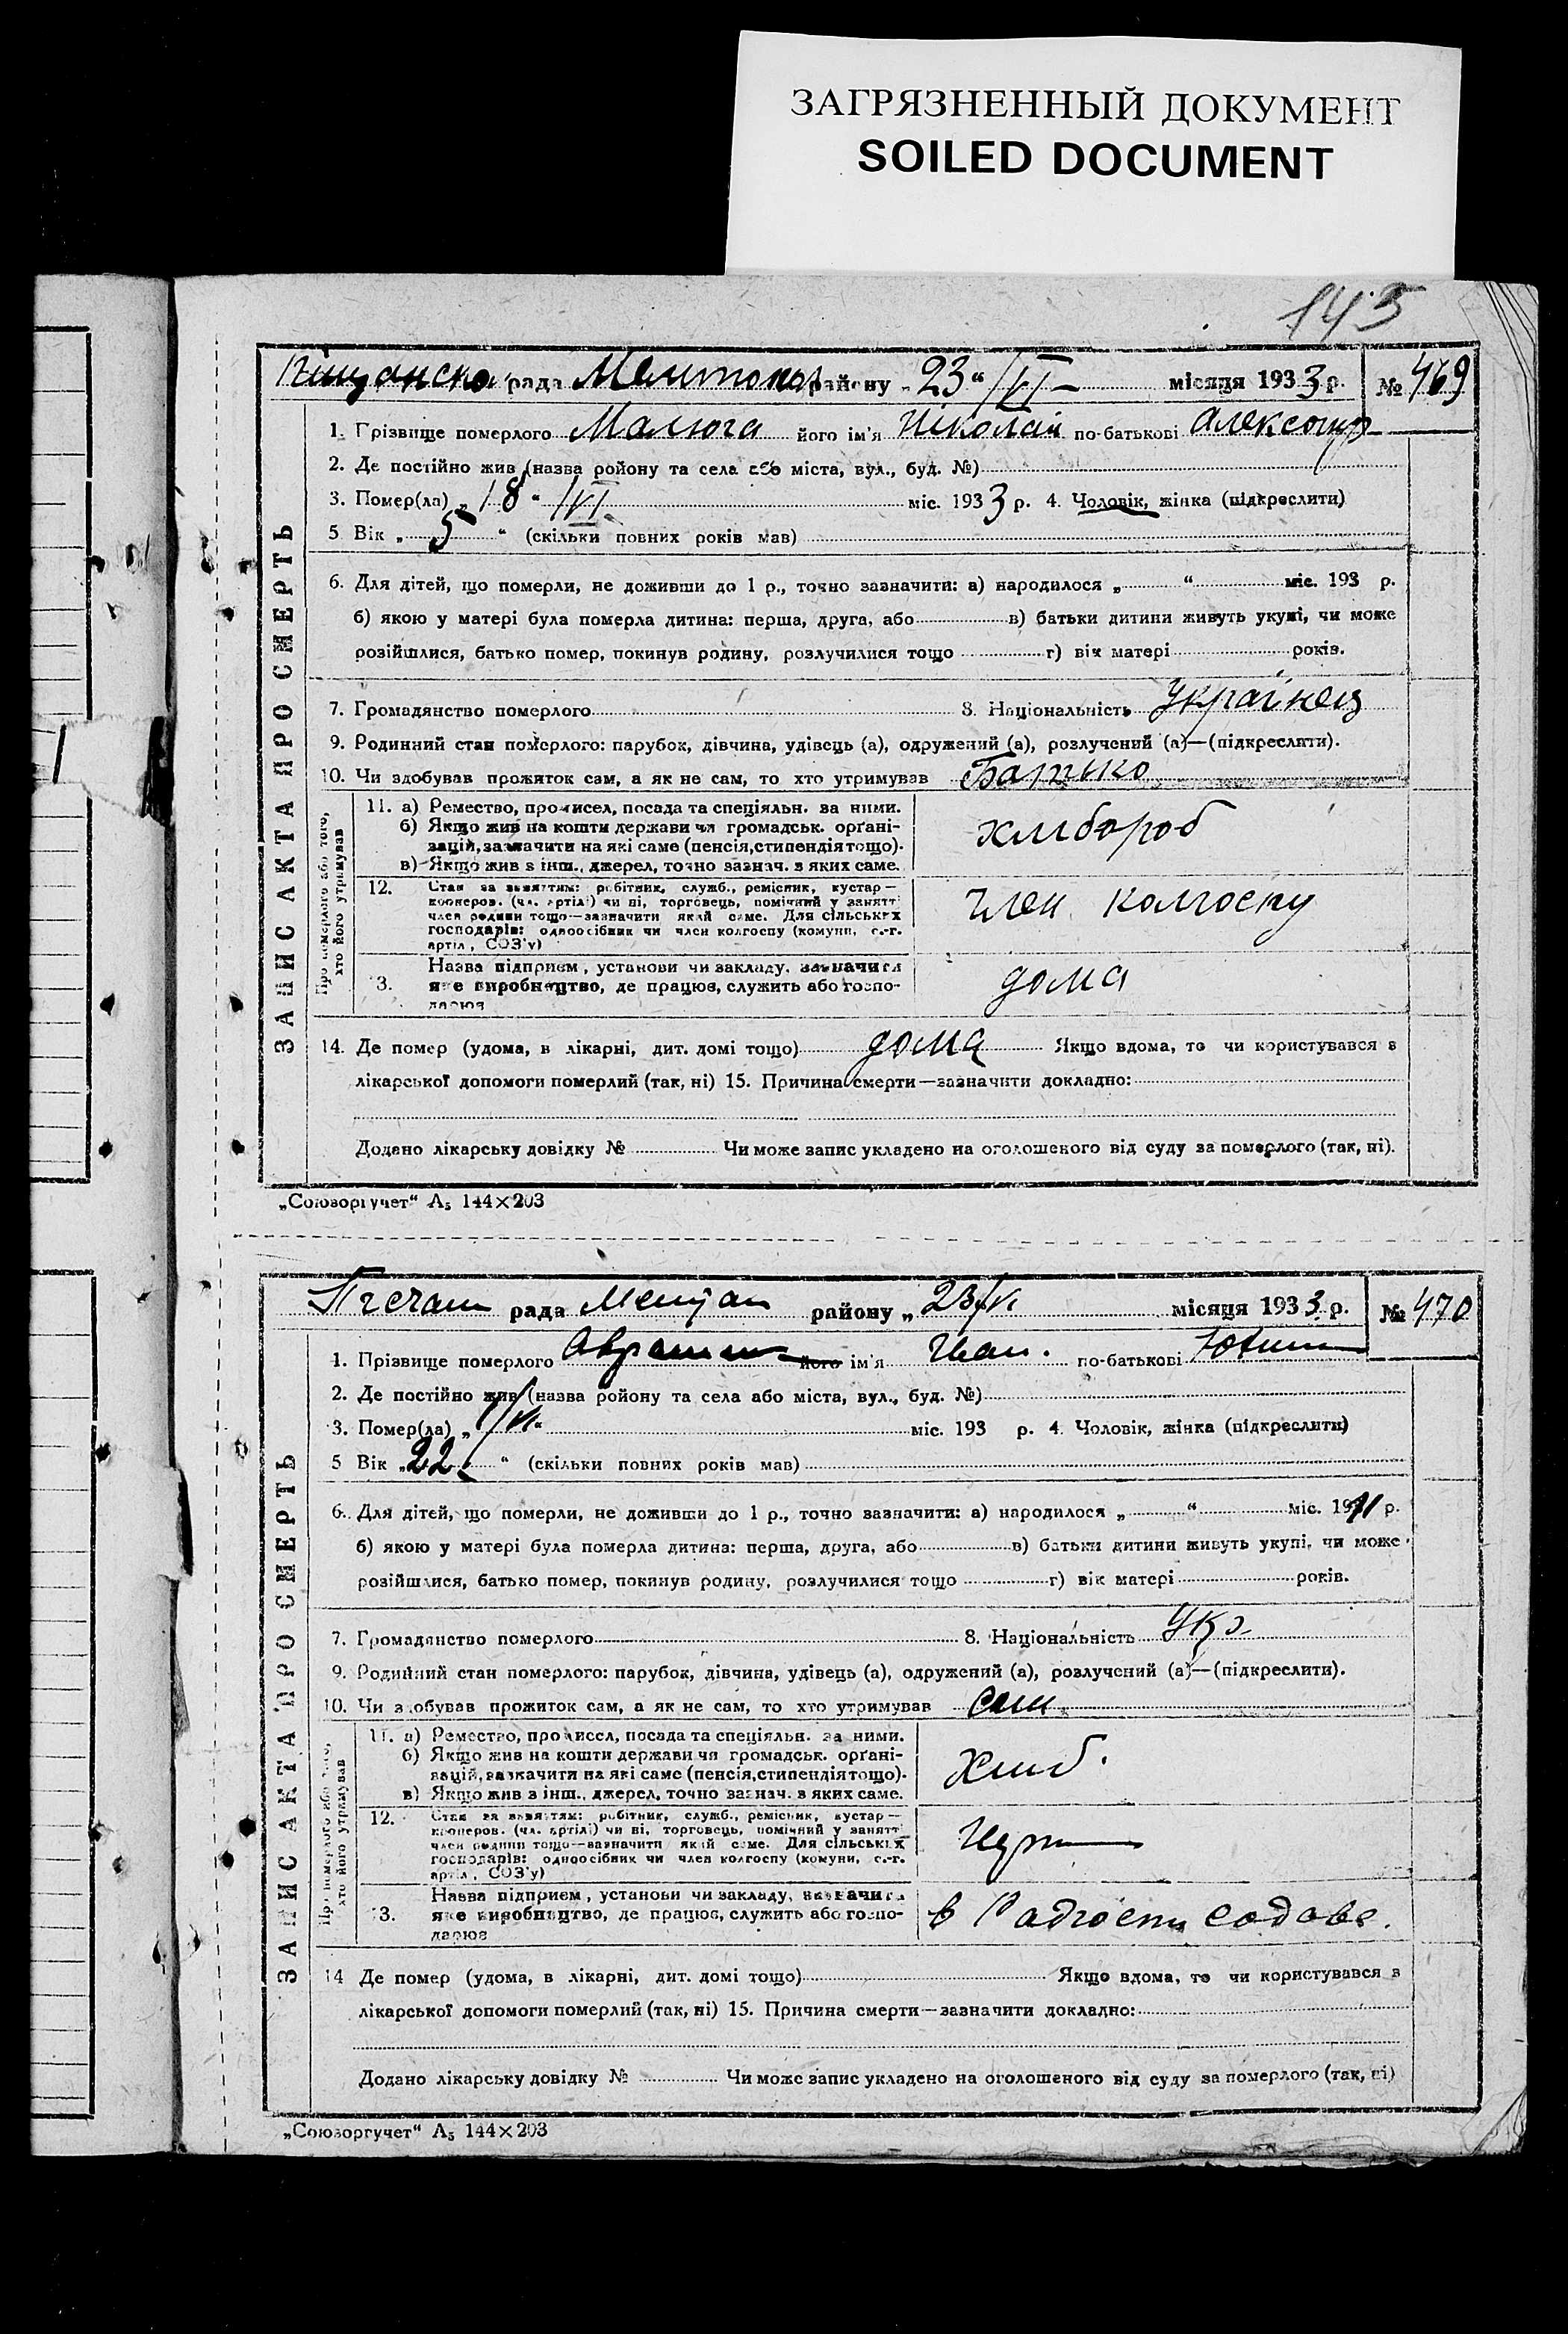 ЗАГРЯЗНЕННЫЙ ДОКУМЕНТ
SOILED DOCUMENT
143
рада района району „23“ /VI месяця 1933 р. № 469
ЗАПИС АКТА ПРО СМЕРТЬ
1. Прізвище померлого Малюга його ім'я Ніколай по-батькові Александр
2. Де постійно жив (назва ройону та села або міста, вул., буд. №)
3. Помер(ла) „18“ /VI міс. 1933 р. 4. Чоловік, жінка (підкреслити)
5 Вік „5“ (скільки повних років мав)
6. Для дітей, що померли, не доживши до 1 р., точно зазначити: а) народилося „ “ міс. 193 р.
б) якою у матері була померла дитина: перша, друга, або в) батьки дитини живуть укупі, чи може
розійшлися, батько помер, покинув родину, розлучилися тощо г) вік матері років.
7. Громадянство померлого 8. Національність Українец
9. Родинний стан померлого: парубок, дівчина, удівець (а), одружений (а), розлучений (а)—(підкреслити).
10. Чи здобував прожиток сам, а як не сам, то хто утримував Батько
Про померлого або того, хто його утримував
11. а) Ремество, промисел, посада та спеціяльн. за ними.
б) Якщо жив на кошти держави чи громадськ. орґані-
зацій, зазначити на які саме (пенсія, стипендія тощо).
в) Якщо жив з інш., джерел, точно зазнач. з яких саме.
хлибороб
12. Стан за заняттям: робітник, служб., ремісник, кустар—
кооперов. (чл. артілі) чи ні, торговець, помічний у занятті
член родини тощо—зазначити який саме. Для сільських
господарів: одноосібник чи член колгоспу (комуни, с.-г.
артіл, СОЗ'у)
Член колгоспу
13. Назва підприєм, установи чи закладу, зазначити
яке виробництво, де працює, служить або госпо-
дарює
дома
14. Де помер (удома, в лікарні, дит. домі тощо) дома Якщо вдома, то чи користувався з
лікарської допомоги померлий (так, ні) 15. Причина смерти—зазначити докладно:
Додано лікарську довідку № Чи може запис укладено на оголошеного від суду за померлого (так, ні).
„Союзоргучет“ А5 144×203
рада району „23/VI місяця 1933 р. № 470
ЗАПИС АКТА ПРО СМЕРТЬ
1. Прізвище померлого його ім'я Иван. по-батькові
2. Де постійно жив (назва ройону та села або міста, вул., буд. №)
3. Помер(ла) „1/VI“ міс. 193 р. 4. Чоловік, жінка (підкреслити)
5 Вік „22“ (скільки повних років мав)
6. Для дітей, що померли, не доживши до 1 р., точно зазначити: а) народилося „ “ міс. 1911 р.
б) якою у матері була померла дитина: перша, друга, або в) батьки дитини живуть укупі, чи може
розійшлися, батько помер, покинув родину, розлучилися тощо г) вік матері років.
7. Громадянство померлого 8. Національність Укр
9. Родинний стан померлого: парубок, дівчина, удівець (а), одружений (а), розлучений (а)—(підкреслити).
10. Чи здобував прожиток сам, а як не сам, то хто утримував сам
Про померлого або того, хто його утримував
11. а) Ремество, промисел, посада та спеціяльн. за ними.
б) Якщо жив на кошти держави чи громадськ. орґані-
зацій, зазначити на які саме (пенсія, стипендія тощо).
в) Якщо жив з інш., джерел, точно зазнач. з яких саме.
Хлиб.
12. Стан за заняттям: робітник, служб., ремісник, кустар—
кооперов. (чл. артілі) чи ні, торговець, помічний у занятті
член родини тощо—зазначити який саме. Для сільських
господарів: одноосібник чи член колгоспу (комуни, с.-г.
артіл, СОЗ'у)
13. Назва підприєм, установи чи закладу, зазначити
яке виробництво, де працює, служить або госпо-
дарює
в Радгоспи садове.
14 Де помер (удома, в лікарні, дит. домі тощо) Якщо вдома, то чи користувався з
лікарської допомоги померлий (так, ні) 15. Причина смерти—зазначити докладно:
Додано лікарську довідку № Чи може запис укладено на оголошеного від суду за померлого (так, ні)
„Союзоргучет“ А5 144×203